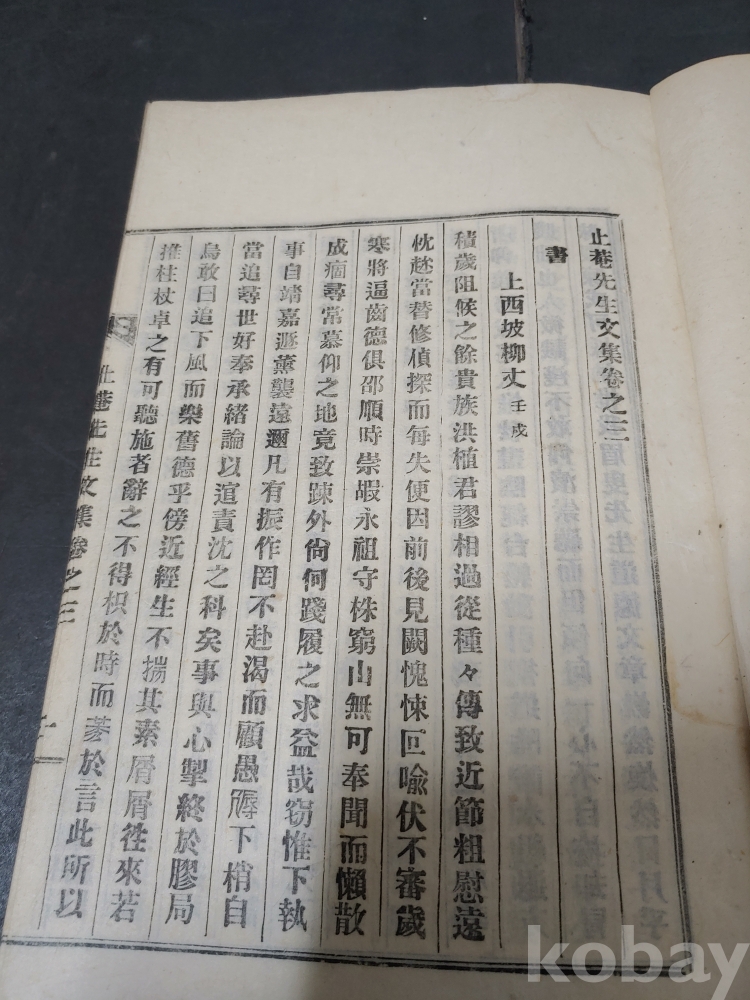 止菴先生文集卷之三
書
上西坡柳丈 壬戌
積歲阻候之餘貴族洪植君謬相過從種々傳致近節粗慰遠
忱玆當替修偵探而每失便因前後見闕愧悚叵喩伏不審歲
寒將逼齒德俱邵順時崇嘏永祖守株窮山無可奉聞而懶散
成痼尋常慕仰之地竟致踈外尙何踐履之求益哉窃惟下執
事自靖嘉遯薰襲遠邇凡有振作罔不赴渴而顧愚下梢自
當追尋世好奉承緖論以逭責沈之科矣事與心掣終於膠局
烏敢曰追下風而樂舊德乎傍近經生不揣其素屑屑徃來若
推柱杖卓之有可聽施者辭之不得枳於時而蔘於言此所以
止菴先生文集卷之三
kobay